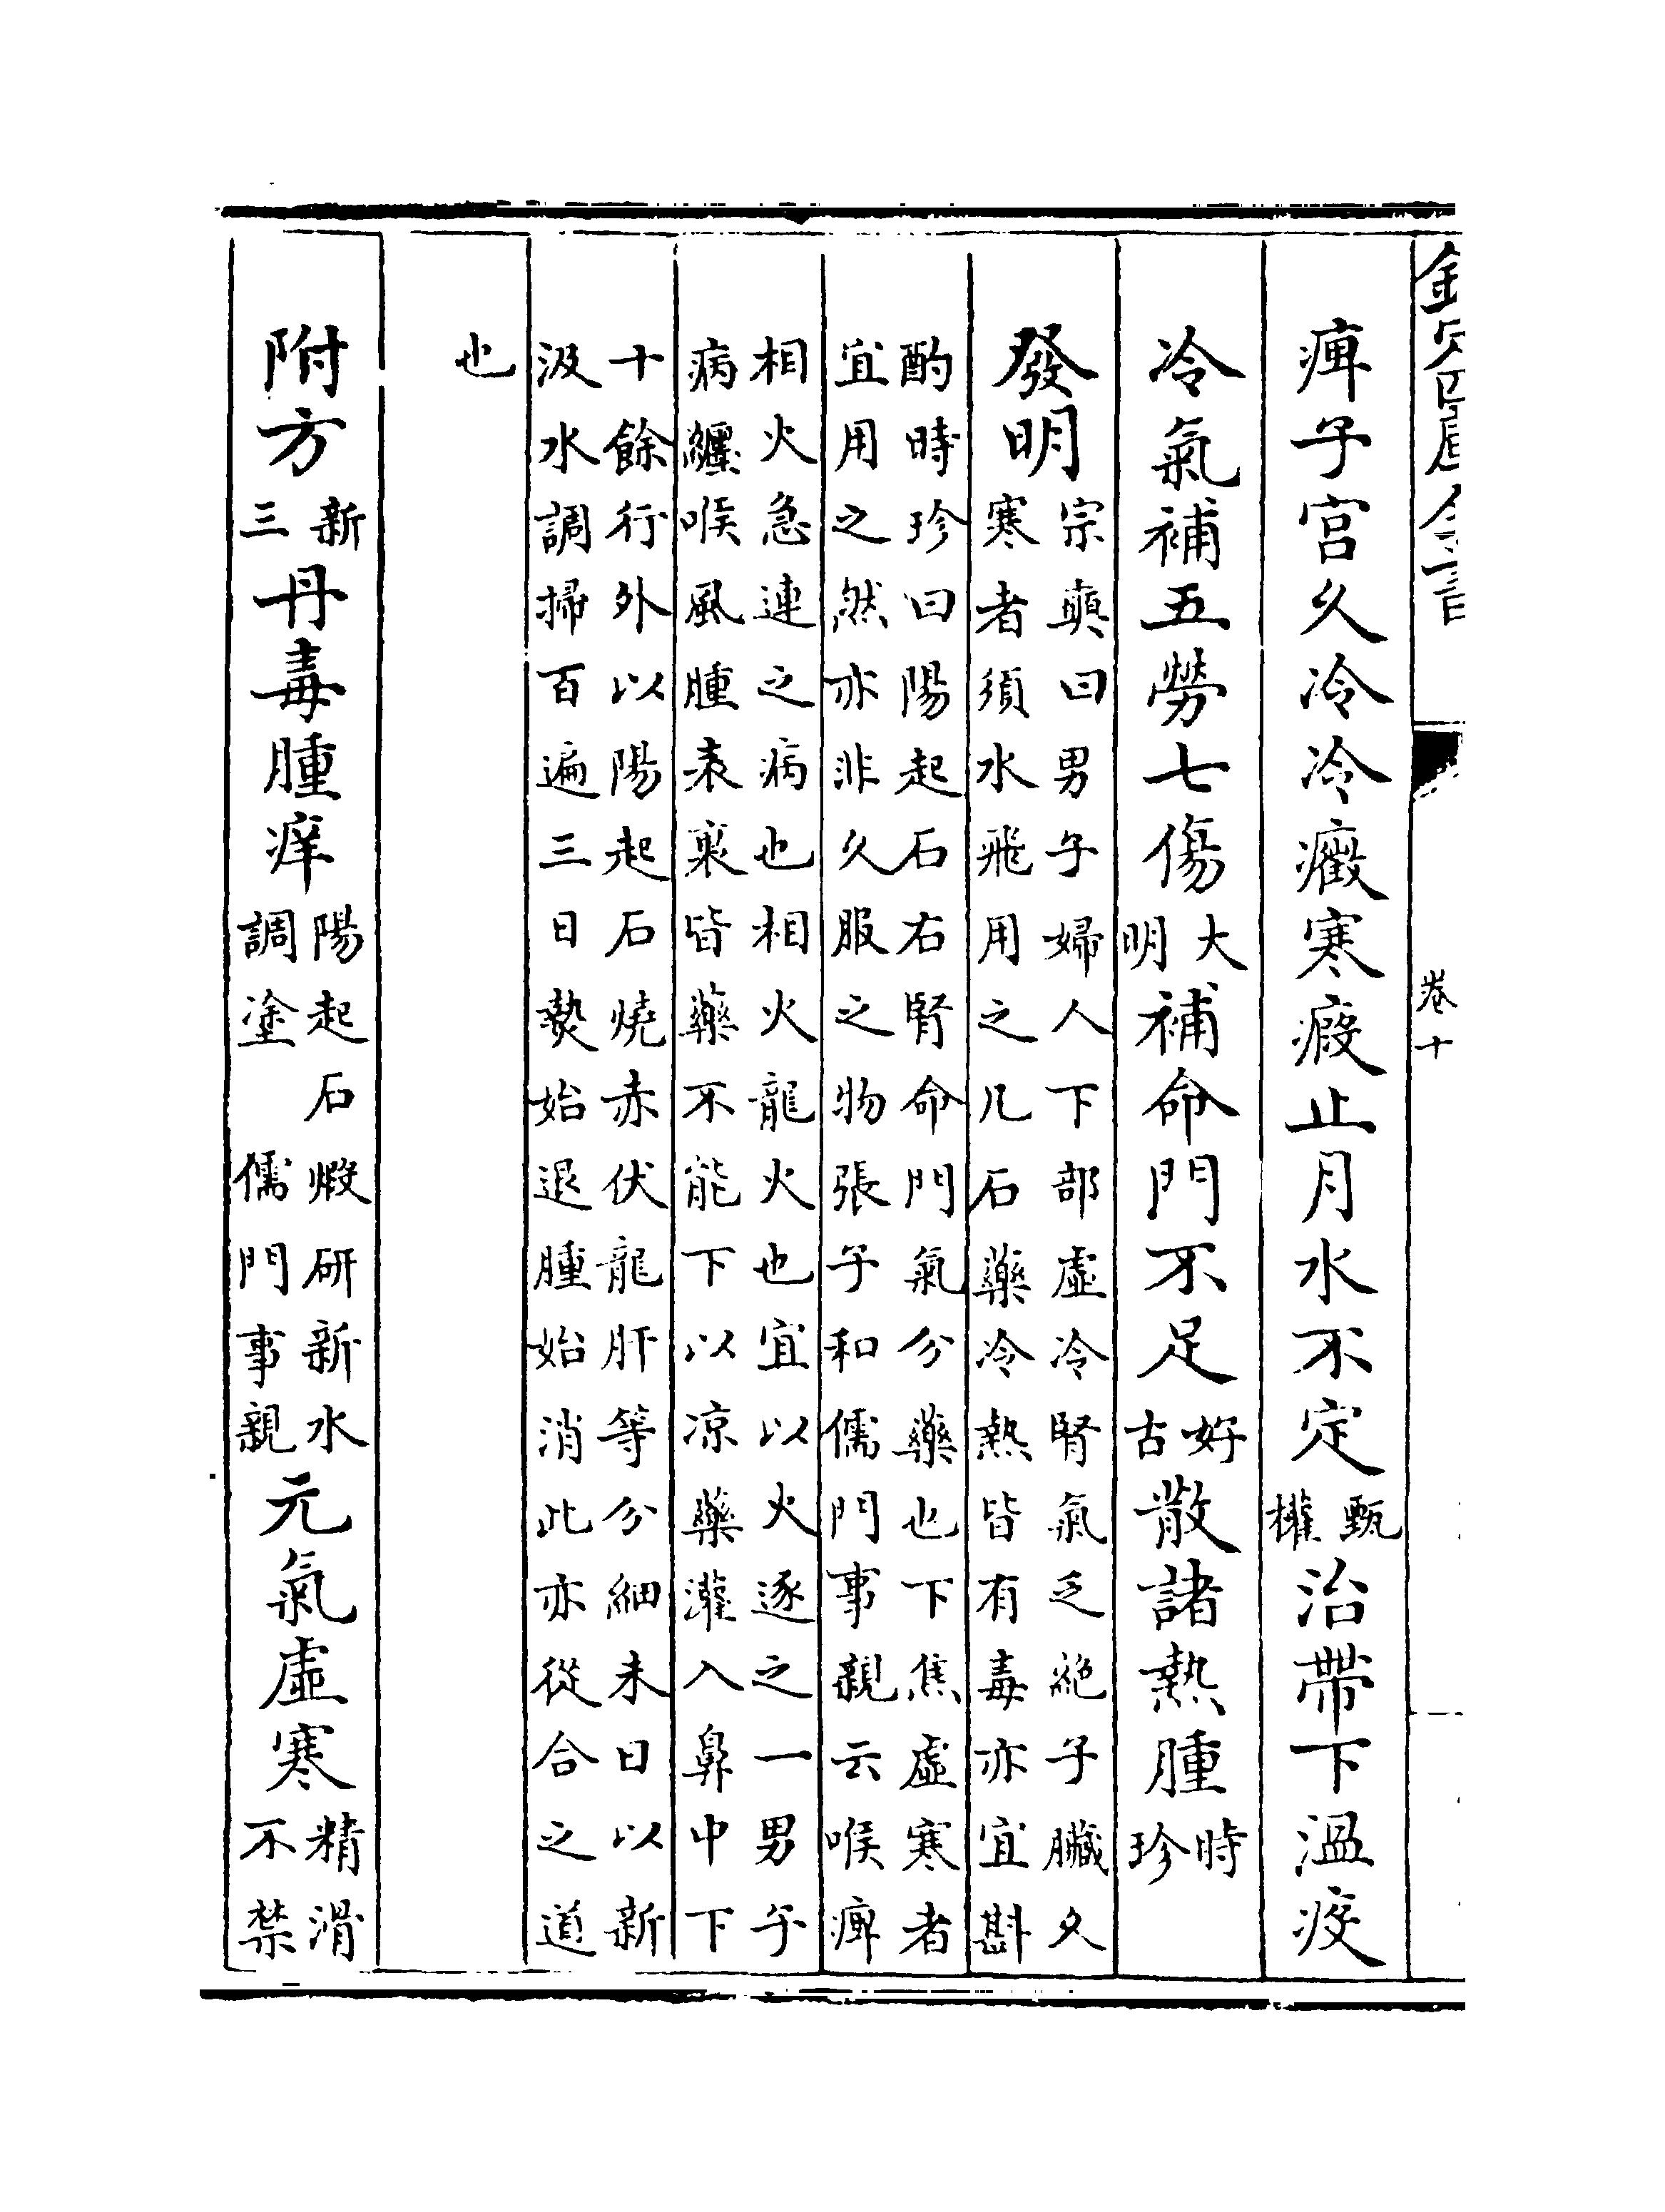 欽定四庫全書
卷十
痺子宫久冷冷癥寒瘕止月水不定甄權治帶下温疫
冷氣補五勞七傷大明補命門不足好古散諸熱腫時珍
發明宗奭曰男子婦人下部虛冷腎氣乏絶子臟久
寒者須水飛用之凡石藥冷熱皆有毒亦宜斟
酌時珍曰陽起石右腎命門氣分藥也下焦虛寒者
宜用之然亦非久服之物張子和儒門事親云喉痺
相火急速之病也相火龍火也宜以火逐之一男子
病纏喉風腫表裏皆藥不能下以凉藥灌入鼻中下
十餘行外以陽起石燒赤伏龍肝等分細末日以新
汲水調掃百遍三日熱始退腫始消此亦從合之道
也
附方新三丹毒腫痒陽起石煅研新水調塗 儒門事親元氣虛寒精滑不禁